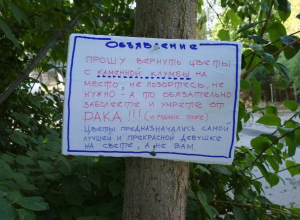 Объявление
ПРОШУ ВЕРНУТЬ ЦВЕТЫ
С КАМЕННОЙ КЛУМБЫ НА
МЕСТО, НЕ ПОЗОРТЕСЬ, НЕ
НУЖНО - А ТО ОБЯЗАТЕЛЬНО
ЗАБОЛЕЕТЕ И УМРЕТЕ ОТ
РАКА!!! (
ЦВЕТЫ ПРЕДНАЗНАЧАЛИСЬ САМОЙ
ЛУЧШЕЙ И ПРЕКРАСНОЙ ДЕВУШКЕ
НА СВЕТЕ, А НЕ ВАМ